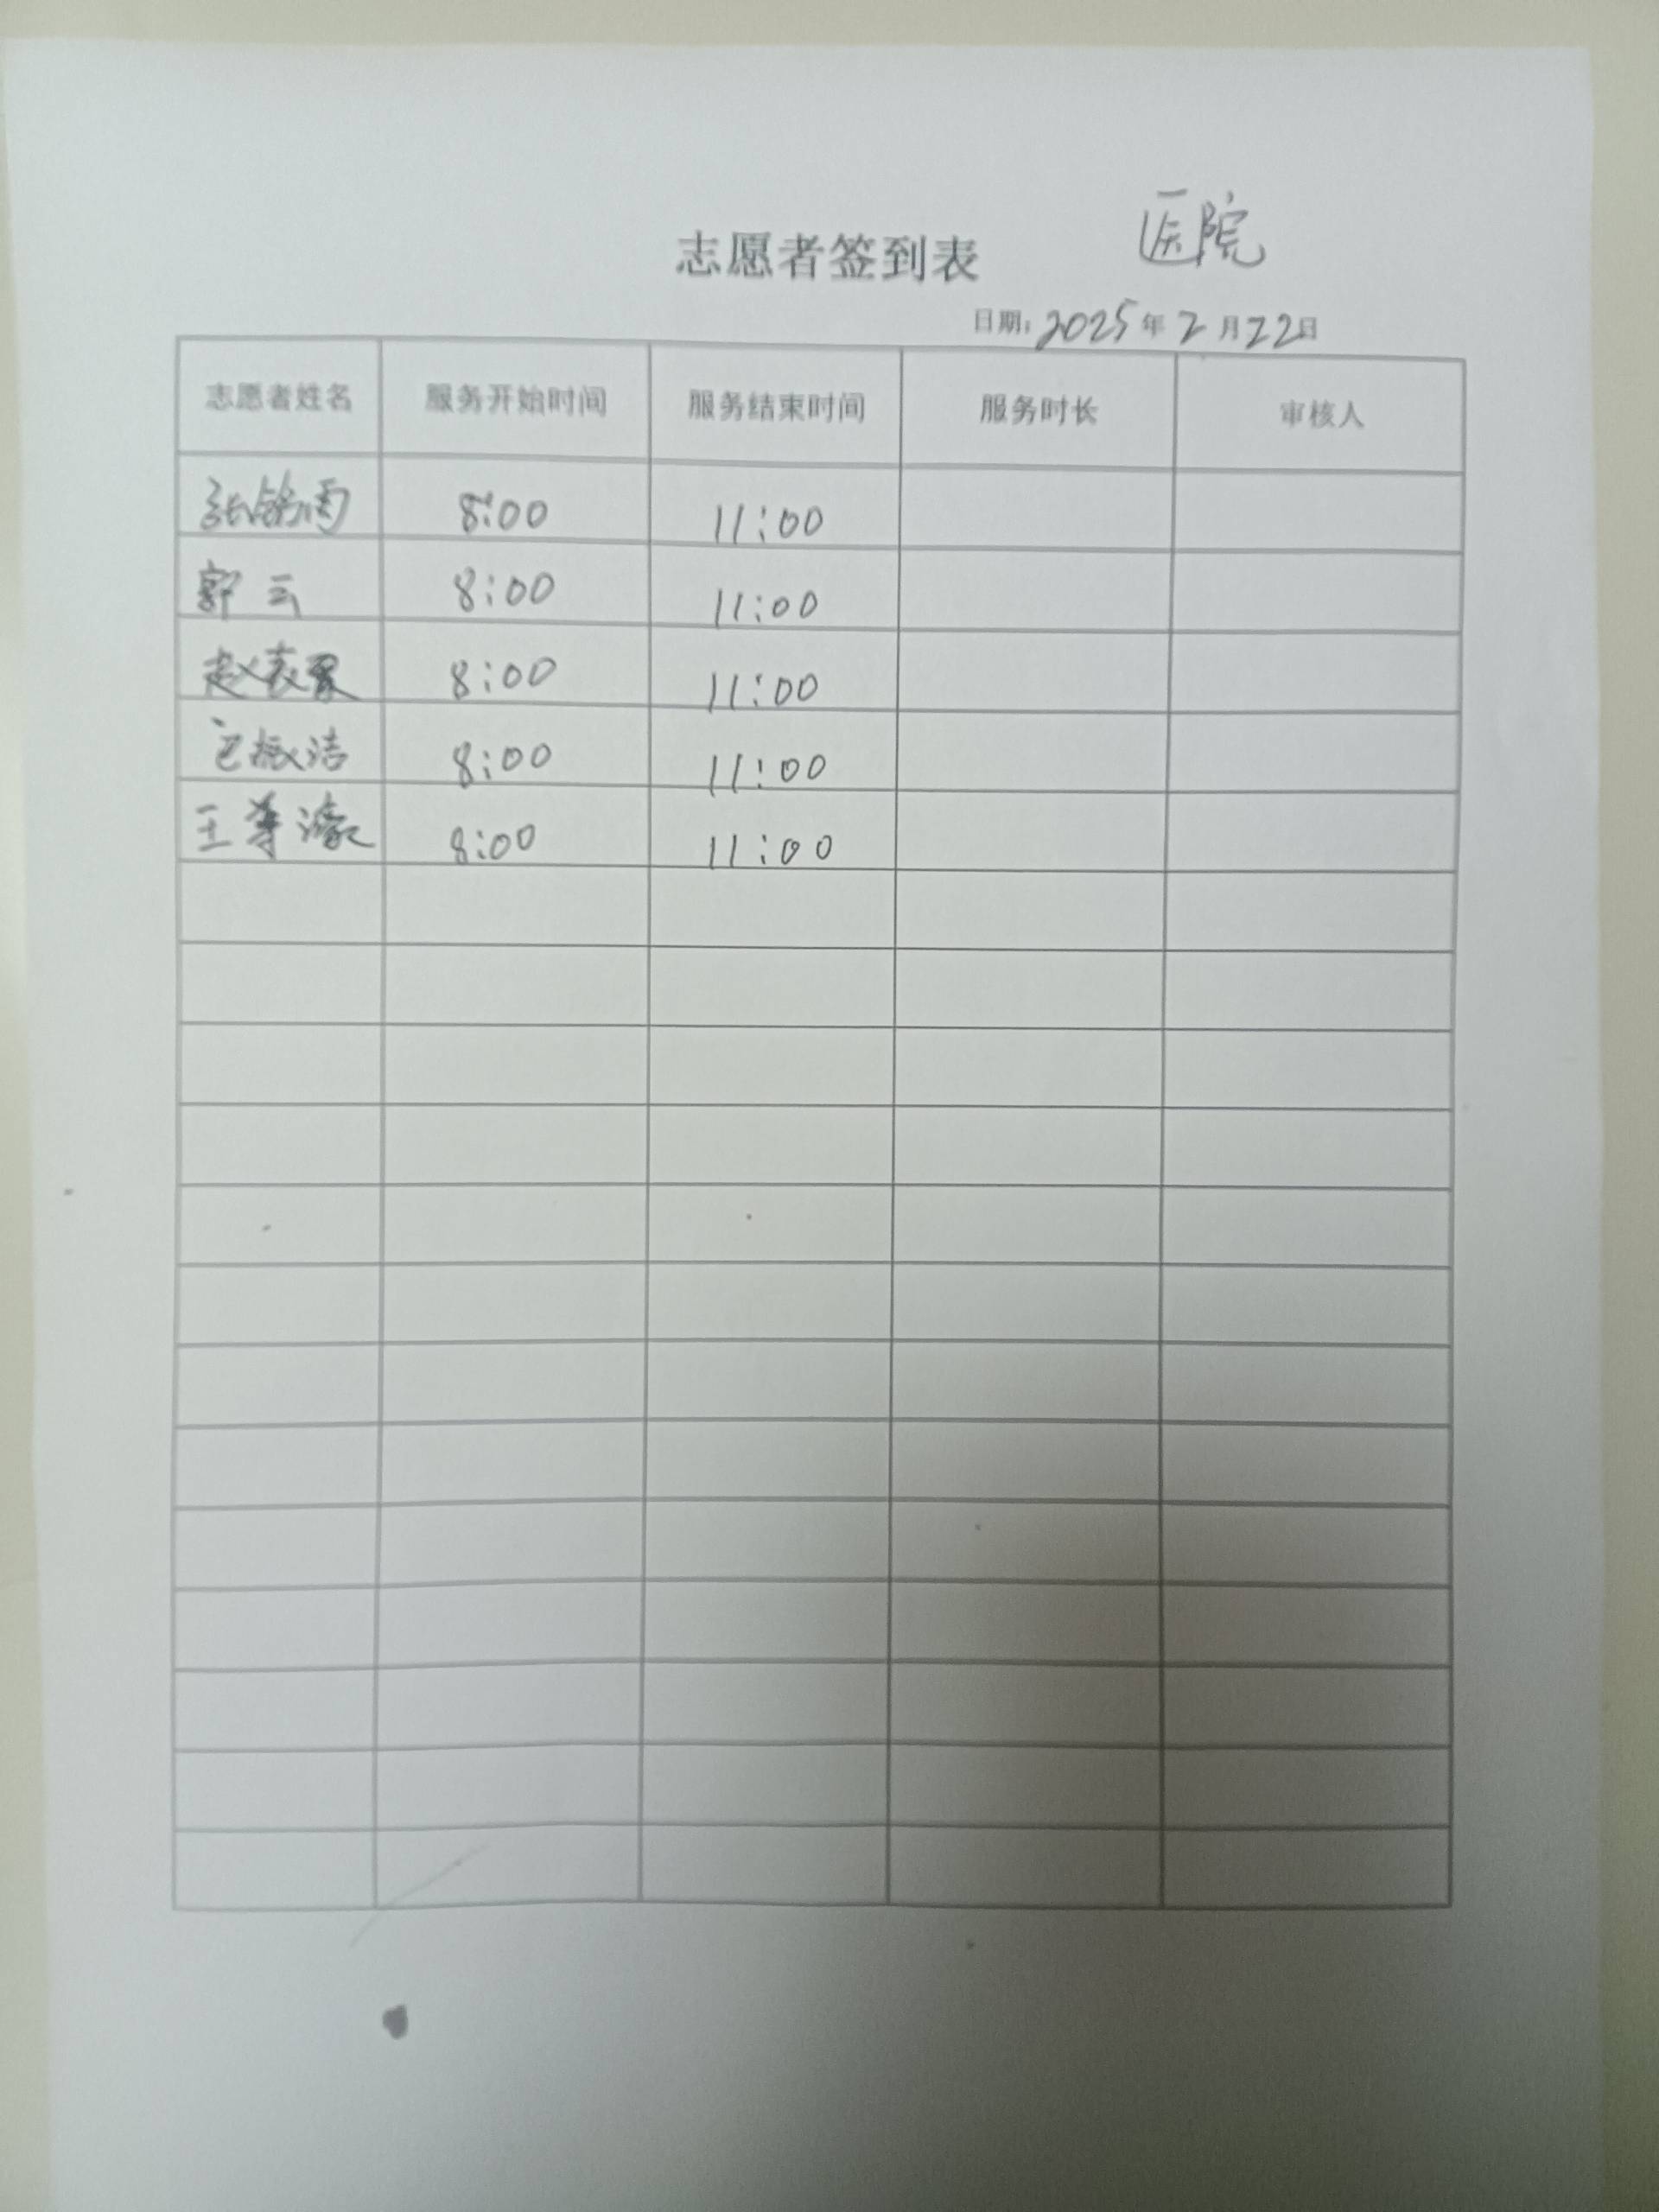 医院
志愿者签到表
日期: 2025年2月22日
志愿者姓名 服务开始时间 服务结束时间 服务时长 审核人
张铭雨 8:00 11:00
郭云 8:00 11:00
赵 8:00 11:00
8:00 11:00
王 8:00 11:00